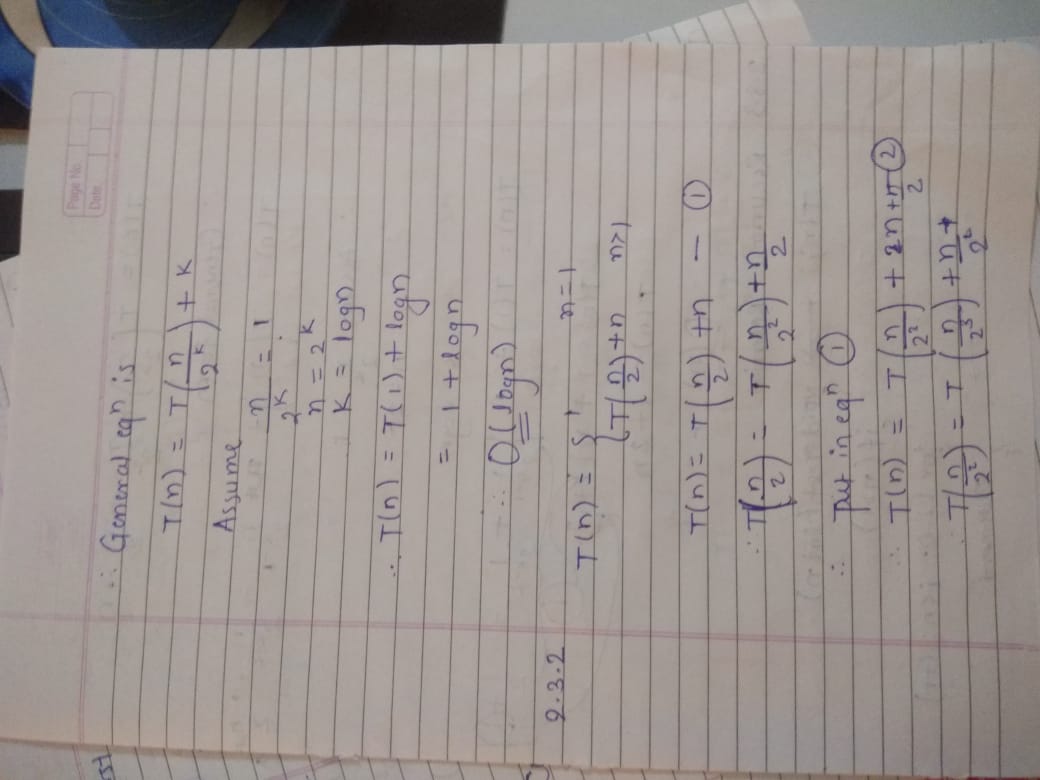 Page No.
Date
∴ General eqⁿ is
T(n) = T(n/2ᵏ) + K
Assume
n/2ᵏ = 1
n = 2ᵏ
K = logn
∴ T(n) = T(1) + logn
= 1 + logn
∴ O(logn)
2.3.2
T(n) = { 1 n=1
{ T(n/2) + n n>1
T(n) = T(n/2) + n — ①
∴ T(n/2) = T(n/2²) + n/2
∴ Put in eqⁿ ①
∴ T(n) = T(n/2²) + n + n/2 ②
∴ T(n/2²) = T(n/2³) + n/2²